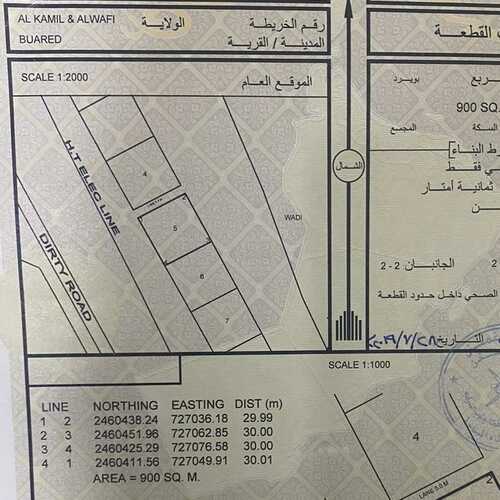 AL KAMIL & ALWAFI الولايـة رقم الخريطة
BUARED المدينـة / القريـة
القطعـة
SCALE 1:2000 الموقع العـام
بويـرد
900 SQ.
المجمع السكة
H.T ELEC LINE
DIRTY ROAD
4
5
6
7
WADI
الشمال
ثمانية أمتار
الجانبـان 2 - 2
الصحي داخـل حدود القطعـة
التاريخ
SCALE 1:1000
LINE NORTHING EASTING DIST (m)
1 2 2460438.24 727036.18 29.99
2 3 2460451.96 727062.85 30.00
3 4 2460425.29 727076.58 30.00
4 1 2460411.56 727049.91 30.01
AREA = 900 SQ. M.
4